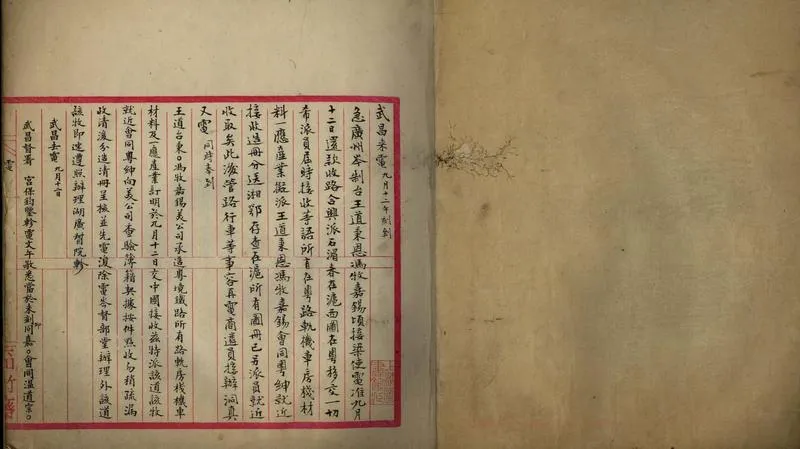 武昌來電 九月十二午刻到
急廣州岑制台王道秉恩馮牧嘉錫頃接梁使電准九月
十二日還款收路合興派石溫春在滬西圖在粵移交一切
希派員屆時接收等語所有在粵路軌機車房棧材
料一應產業擬派王道秉恩馮牧嘉錫會同粵紳就近
接收造冊分送湘鄂存查在滬所有圖冊已另派員就近
收取矣此後管路行車等事容再電商遴員接辦洞真
又電 同時奉到
王道台秉。馮牧嘉錫美公司承造粵境鐵路所有路軌房棧機車
材料及一應產業訂明於九月十二日交中國接收茲特派該道該牧
就近會同粵紳向美公司查驗簿籍契據按件點收勿稍疏漏
收清後分造清冊呈核並先電復除電岑督部堂辦理外該道
該牧即速遵照辦理湖廣督院
武昌去電 九月十二日
武昌督署 宮保鈞鑒 電文午敬悉當於未刻同嘉。會同溫道宗。
電